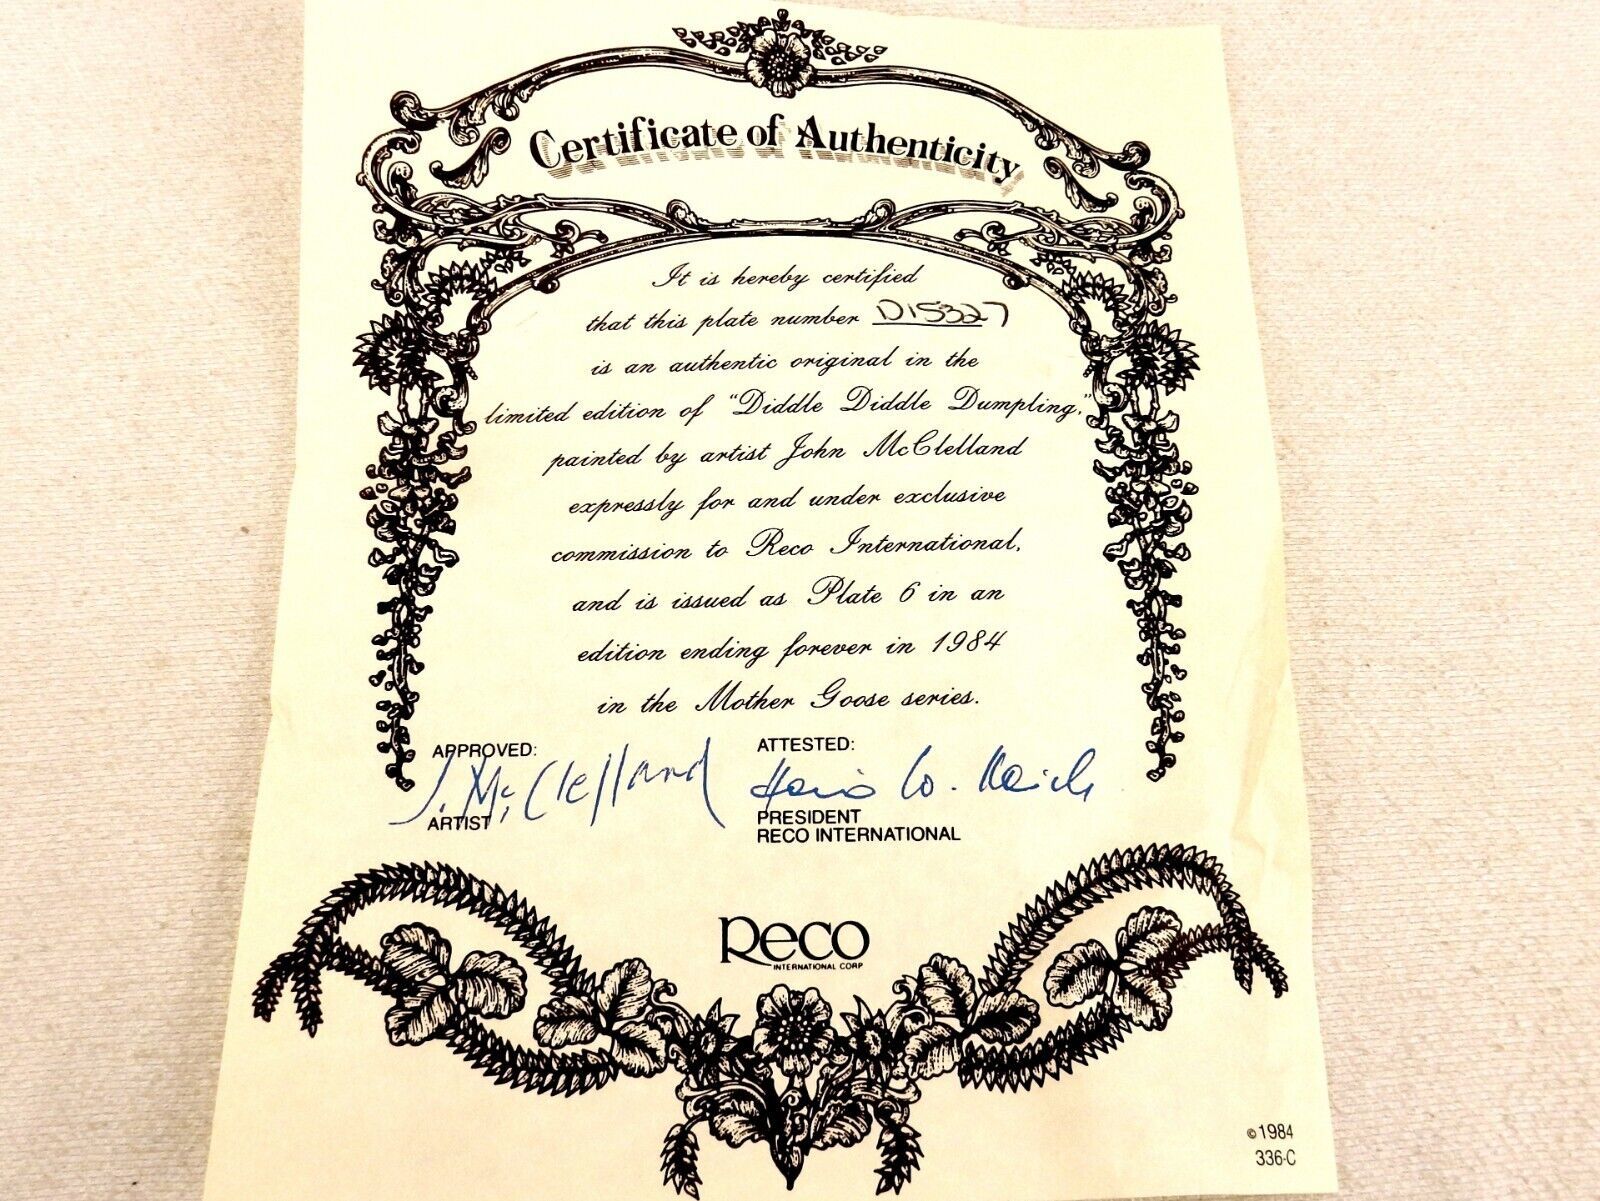 Certificate of Authenticity
It is hereby certified
that this plate number D15327
is an authentic original in the
limited edition of "Diddle Diddle Dumpling,"
painted by artist John McClelland
expressly for and under exclusive
commission to Reco International,
and is issued as Plate 6 in an
edition ending forever in 1984
in the Mother Goose series.
APPROVED:
J. McClelland
ARTIST
ATTESTED:
W. Reich
PRESIDENT
RECO INTERNATIONAL
Reco
INTERNATIONAL CORP
©1984
336-C